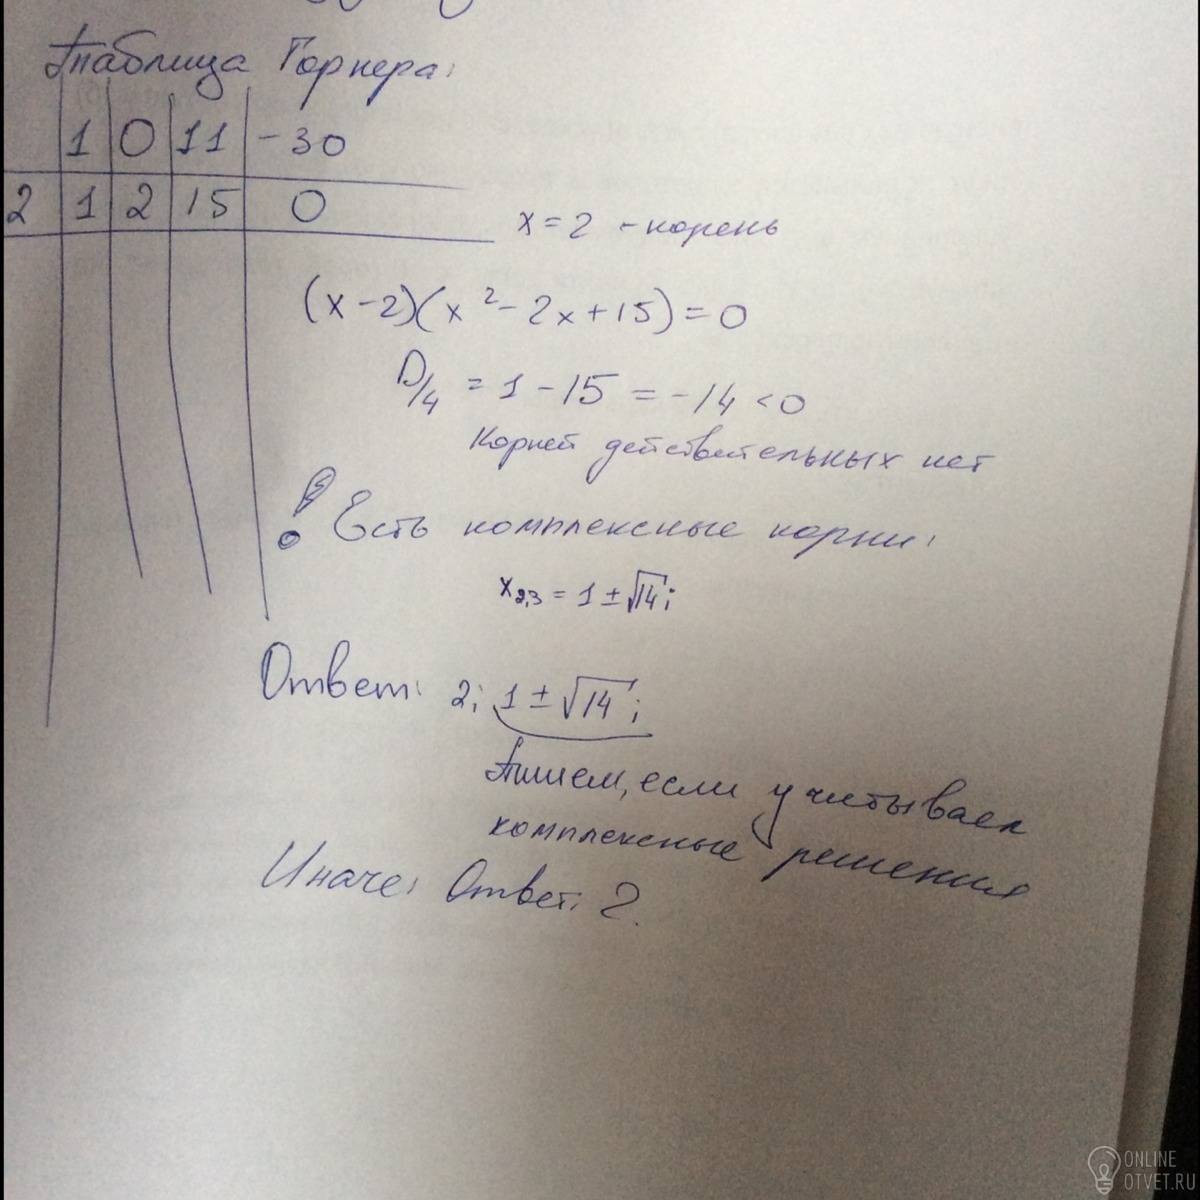 Таблица Горнера:
1 0 11 -30
2 1 2 15 0
x=2 - корень
(x-2)(x²-2x+15)=0
D/4 = 1-15 = -14 <0
Корней действительных нет
! Есть комплексные корни:
x2,3 = 1±√14 i
Ответ: 2; 1±√14 i
Пишем, если учитываем
комплексные решения
Иначе: Ответ: 2.
ONLINE
OTVET.RU